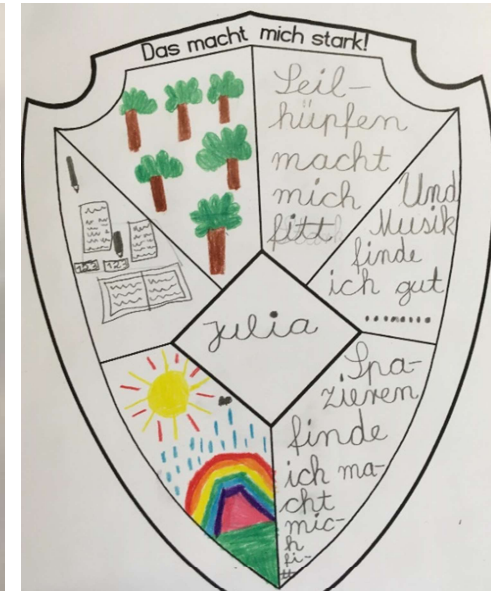 Das macht mich stark!
Seil-
hüpfen
macht
mich
fitt
Und
Musik
finde
ich gut
Julia
123
123
Spa-
zieren
finde
ich ma-
cht
mic-
h
fi-
tt